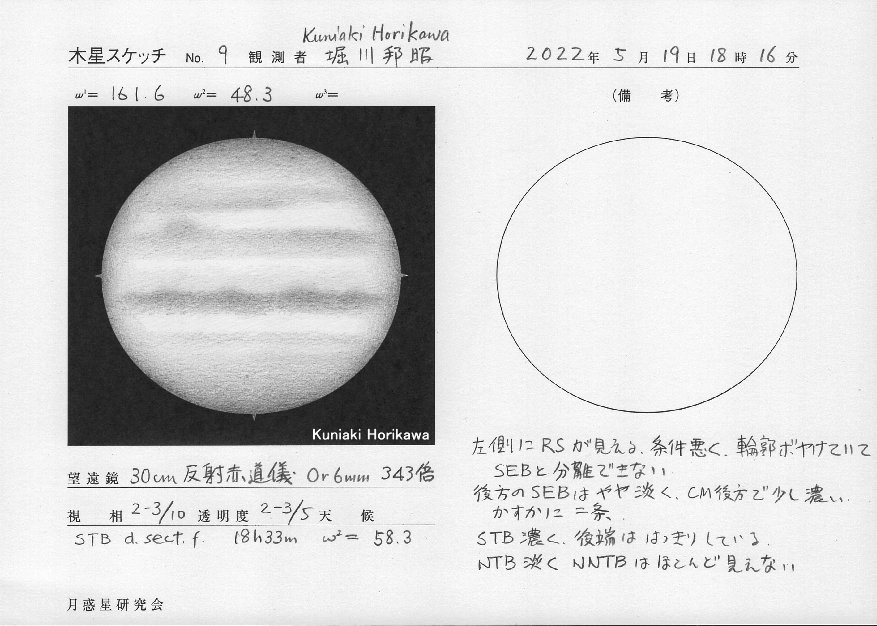 Kuniaki Horikawa
木星スケッチ No. 9 観測者 堀川邦昭 2022年 5月 19日 18時 16分
ω¹= 161.6 ω²= 48.3 ω³=
(備 考)
Kuniaki Horikawa
望遠鏡 30cm 反射赤道儀 Or6mm 343倍
視 相 2-3/10 透明度 2-3/5 天 候
STB d. sect, f. 18h33m ω²= 58.3
左側に RS が見える、条件悪く、輪郭ボヤけていて
SEBと分離できない
後方のSEBは やや淡く、CM後方で少し濃い、
かすかに 二条、
STB 濃く、後端は はっきりしている.
NTB 淡く NNTB は ほとんど見えない
月惑星研究会